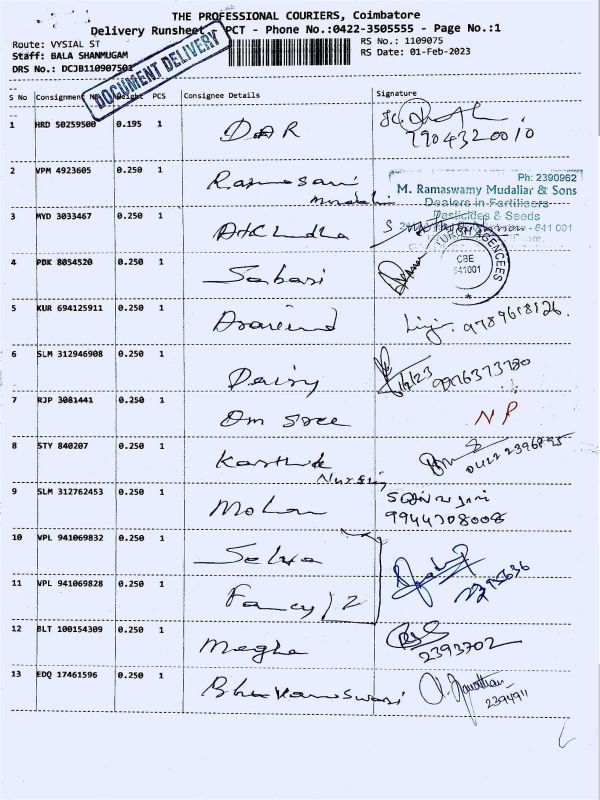 THE PROFESSIONAL COURIERS, Coimbatore
Delivery Runsheet PCT - Phone No.:0422-3505555 - Page No.:1
Route: VYSIAL ST RS No.: 1109075
Staff: BALA SHANMUGAM RS Date: 01-Feb-2023
DRS No.: DCJB110907501
DOCUMENT DELIVERY
S No Consignment PCS Consignee Details Signature
1 HRD 50259500 0.195 1 DAR
7904320010
2 VPM 4923605 0.250 1
Ph: 2390962
M. Ramaswamy Mudaliar & Sons
Dealers in Fertilisers
Pesticides & Seeds
641 001
3 MYD 3033467 0.250 1
4 PDK 8054520 0.250 1 Sabari
AGENCEES
CBE
641001
5 KUR 694125911 0.250 1 Aravind 9789618126.
6 SLM 312946908 0.250 1 Dairy 1/2/23 9976373780
7 RJP 3081441 0.250 1 Om Sree NP
8 STY 840207 0.250 1 Karthik 0422 2396895
Nursing
9 SLM 312762453 0.250 1 Mohan
9944308008
10 VPL 941069832 0.250 1 Selva
11 VPL 941069828 0.250 1 Fancy /2
12 BLT 100154309 0.250 1 Megha 2393702
13 EDQ 17461596 0.250 1 Bhuvaneswari 2394911